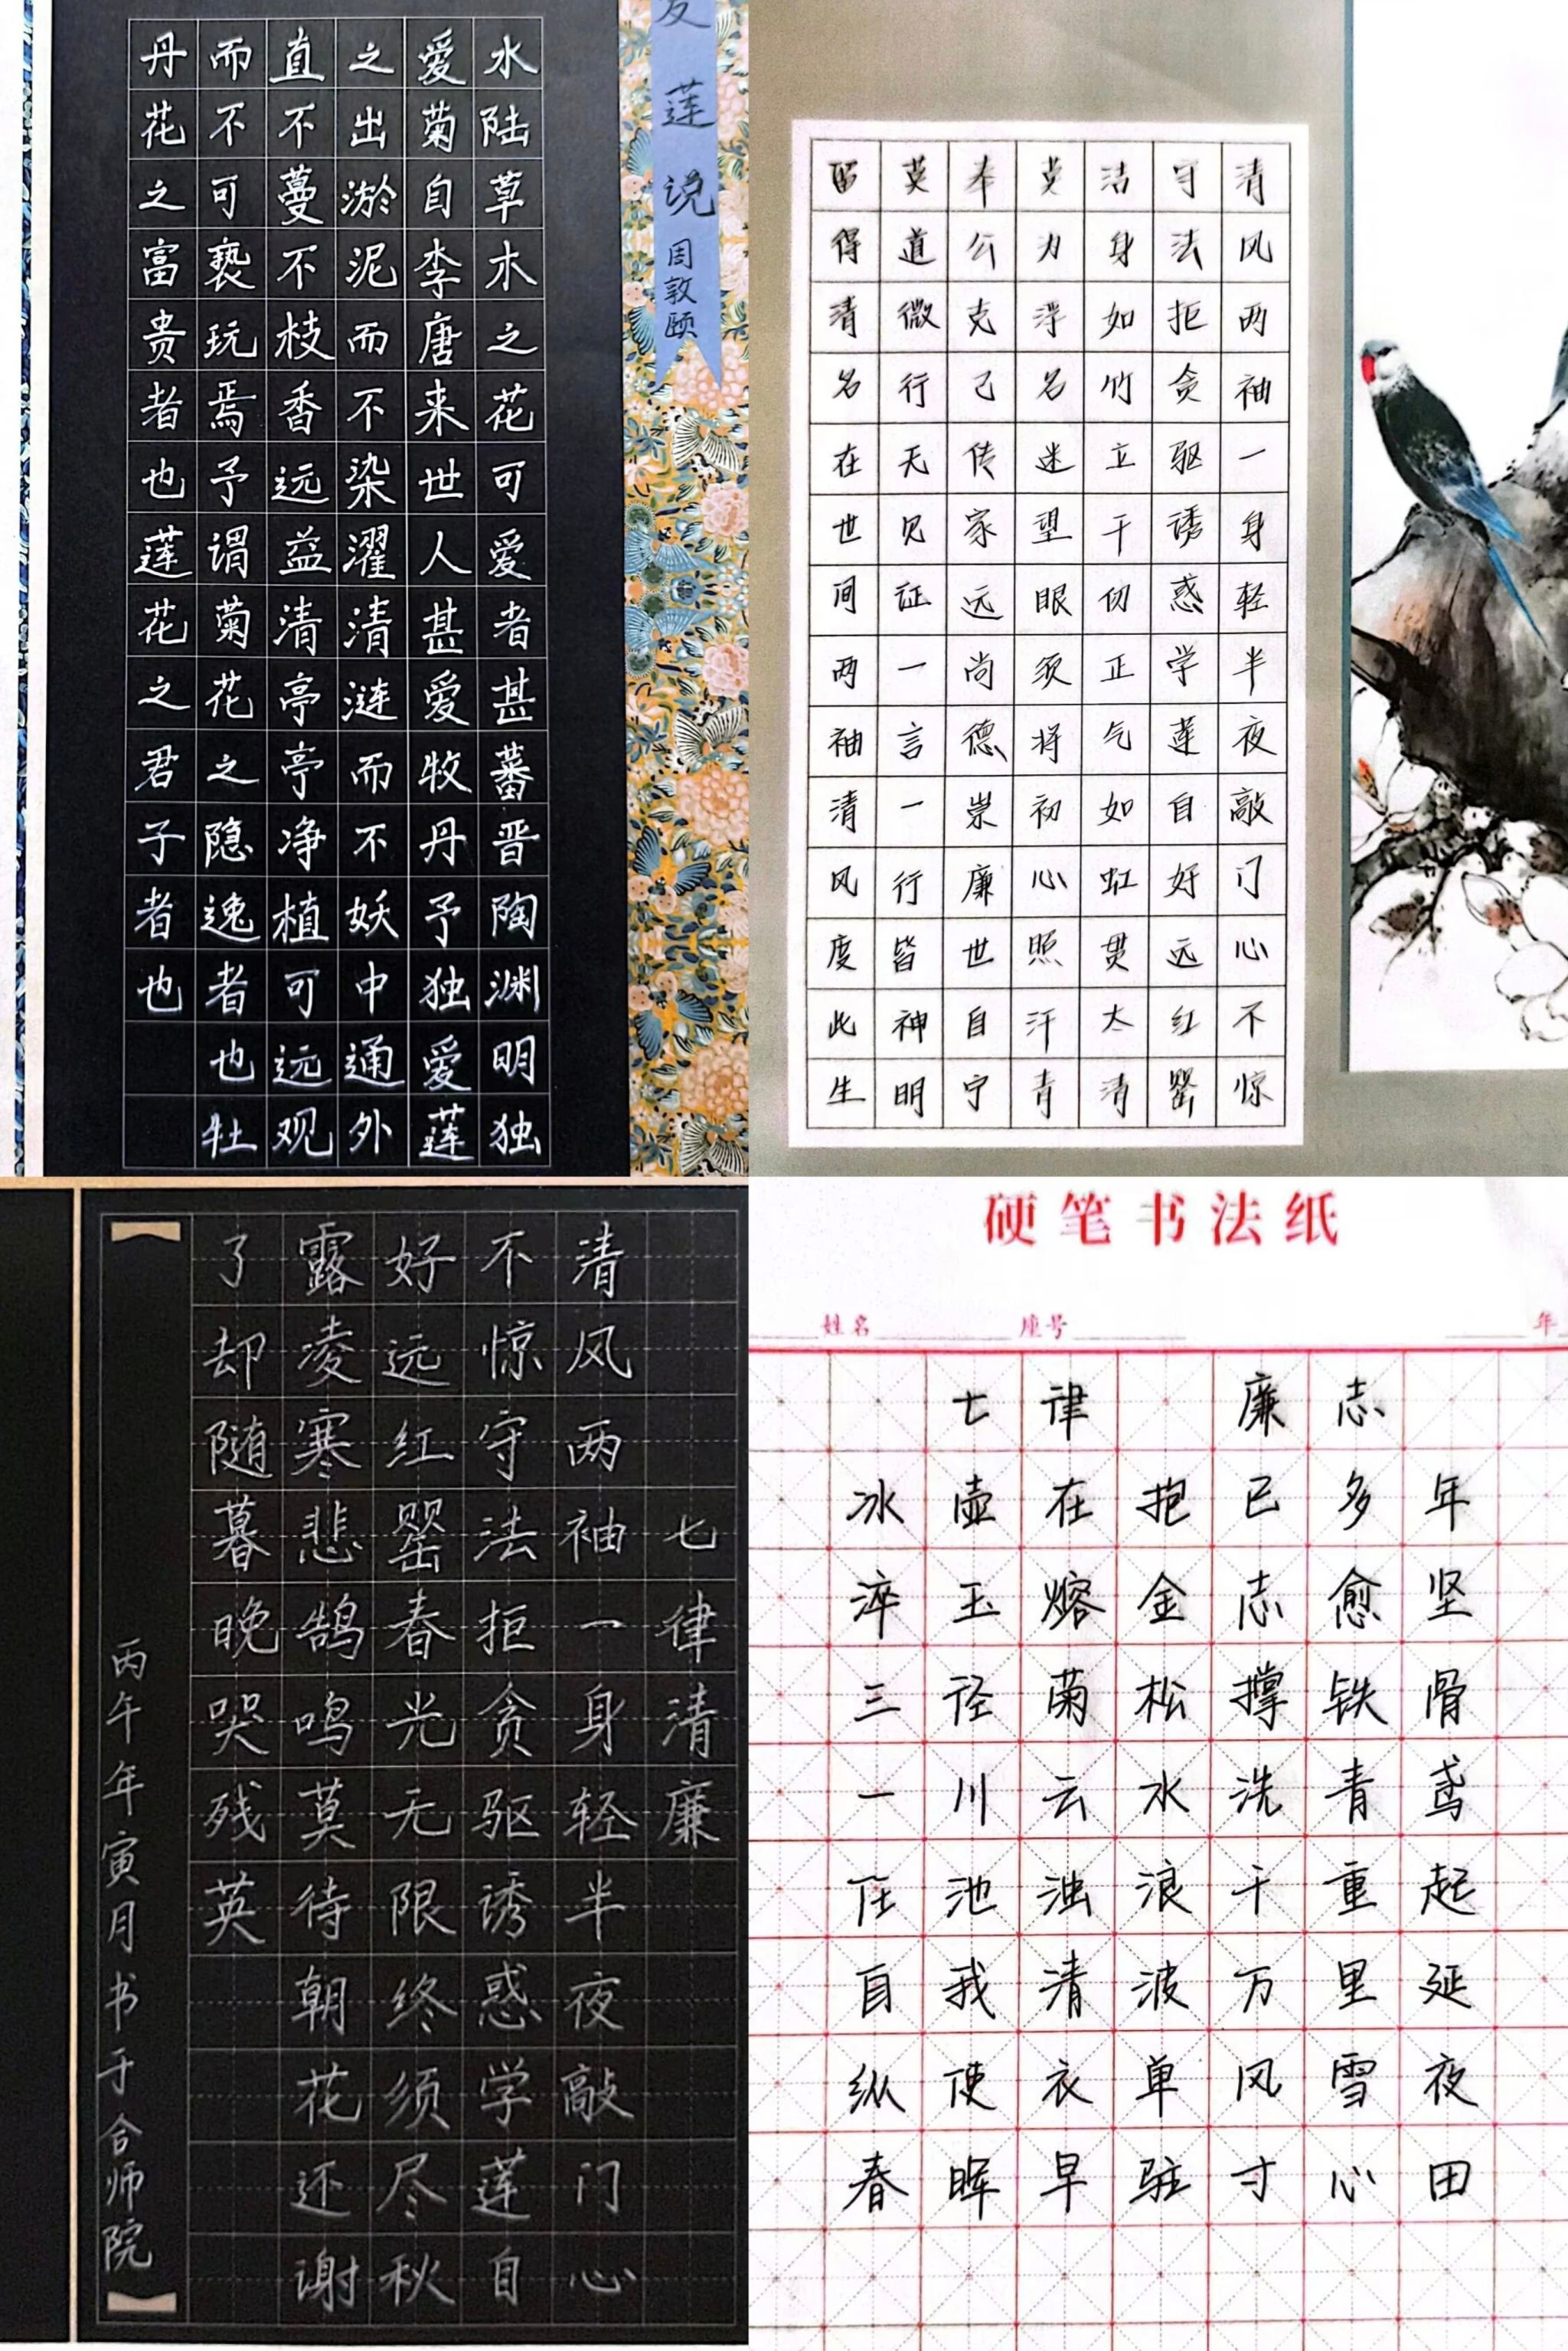 爱莲说 周敦颐
水陆草木之花可爱者甚蕃晋陶渊明独
爱菊自李唐来世人甚爱牧丹予独爱莲
之出淤泥而不染濯清涟而不妖中通外
直不蔓不枝香远益清亭亭净植可远观
而不可亵玩焉予谓菊花之隐逸者也牡
丹花之富贵者也莲花之君子者也
清风两袖一身轻半夜敲门心不惊
守法拒贪驱诱惑学莲自好远红罂
洁身如竹立千仞正气如虹贯太清
莫为浮名迷望眼须将初心照汗青
奉公克己传家远尚德崇廉世自宁
莫道微行无见证一言一行皆神明
留得清名在世间两袖清风度此生
七律清廉
清风两袖一身轻半夜敲门心
不惊守法拒贪驱诱惑学莲自
好远红罂春光无限终须尽秋
露凌寒悲鹄鸣莫待朝花还谢
了却随暮晚哭残英
丙午年寅月书于合师院
硬笔书法纸
姓名 座号 年
七律 廉志
冰壶在抱已多年
淬玉熔金志愈坚
三径菊松撑铁骨
一川云水洗青鸢
任池浊浪千重起
自我清波万里延
纵使衣单风雪夜
春晖早驻寸心田